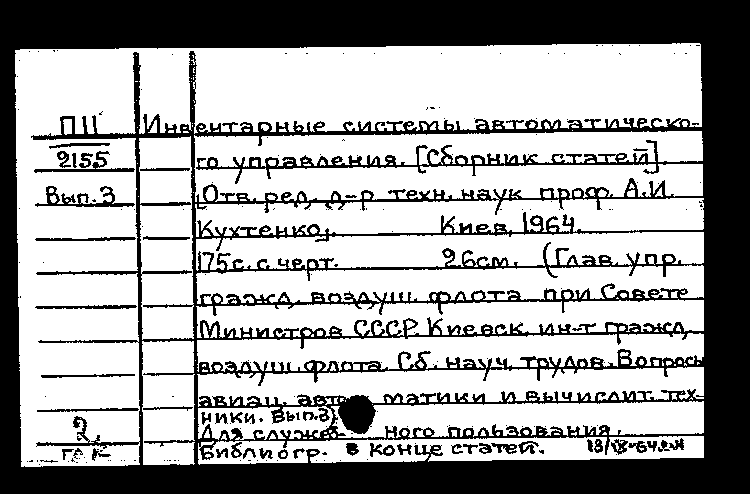 П11 Инвентарные системы автоматическо-
2155 го управления. [Сборник статей].
Вып.3 [Отв. ред. д-р техн. наук проф. А.И.
Кухтенко]. Киев, 1964.
175с. с черт. 26см. (Глав. упр.
гражд. воздуш. флота при Совете
Министров СССР. Киевск. ин-т гражд.
воздуш. флота. Сб. науч. трудов. Вопросы
авиац. авто матики и вычислит. тех-
ники. Вып.3)
2. Для служеб- ного пользования.
Библиогр. в конце статей.